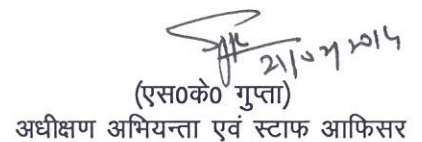 21/07/2014
(एस०के० गुप्ता)
अधीक्षण अभियन्ता एवं स्टाफ आफिसर